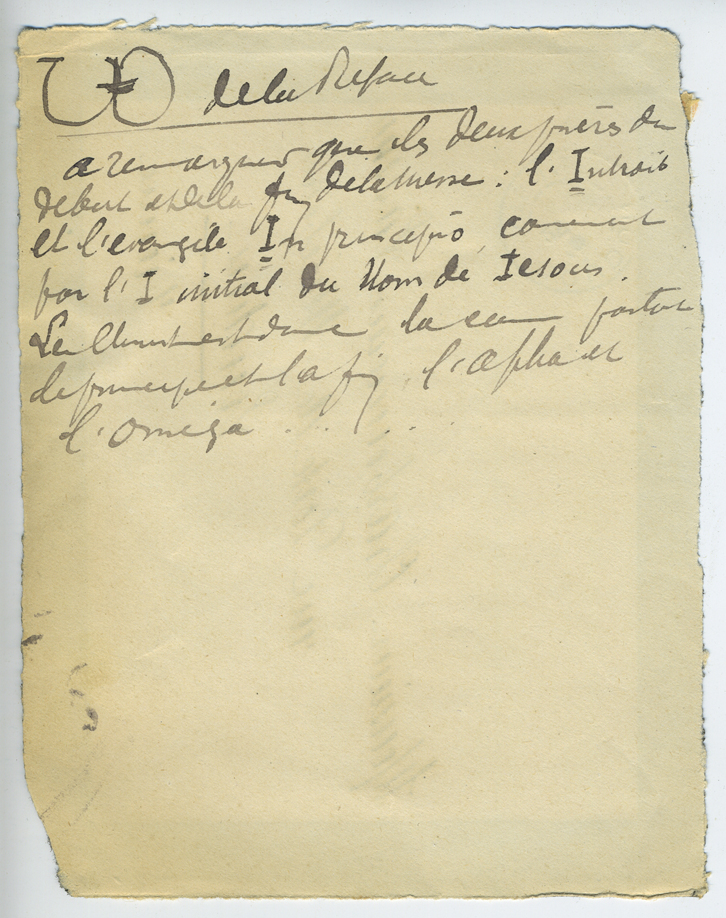 de la Preface
a remarquer que les deux prières du
debut et de la fin de la messe : l'Introit
et l'evangile In principio, comencent
par l'I initial du Nom de Iesous.
Le Christ est donc la partout
le principe et la fin, l'alpha et
l'omega . . . . .